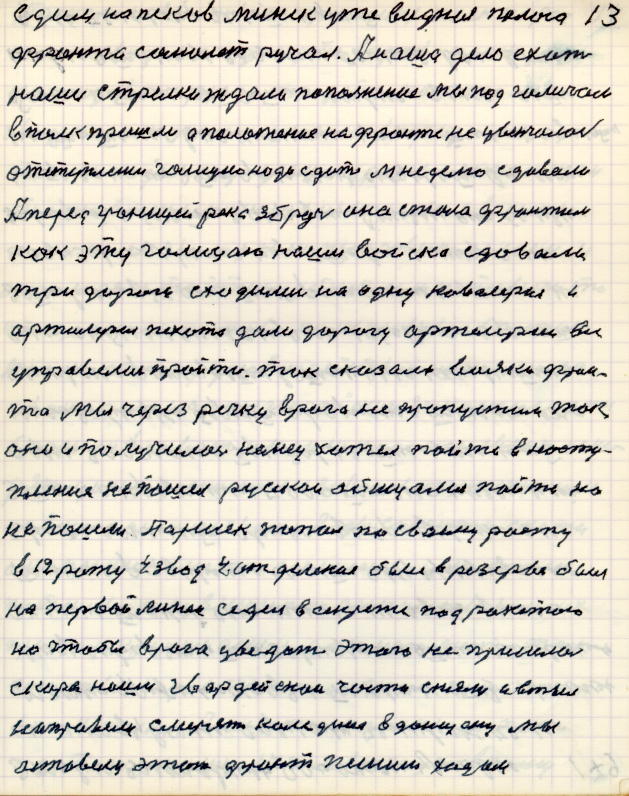 Едим на псков минск уже видная полоса 13
фронта самолет ручал. А наша дело ехат
наши стрелки ждали пополнение мы под галичам
в полк пришли а положение на фронте не
галицию нада сдат неделю сдавали
А перед границей река збруч она стала фронтам
как эту галицаю наши войска сдовали
три дороги сходили на одну кавалерия и
артилерея пехота дали дорогу артелерии
пройти. так сказали вояки фрон-
та мы через речку врага не пропустим так
оно и получилося немец хотел пойти в насту-
пление не пошел руской пойти но
не пошли. Парнек попал по своему росту
в 12 роту 4 звод 4 отделение был в резерве был
на первой линии сидел в секрете под ракитою
но чтобы врага уведат этого не пришлос
скора наши Гвардейскаи части сняли и в тыл
направели мы
оставели этат фронт пешим ходам